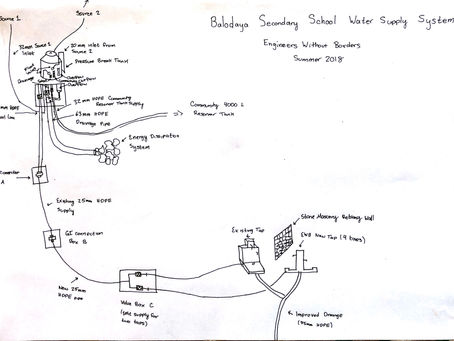 Source 1
Source 2
Balodaya Secondary School Water Supply System
Engineers Without Borders
Summer 2018
32mm Source 1
Inlet
20mm Inlet from
Source 2
Pressure Break Tank
Overflow
32 mm HDPE Community
Reservoir Tank Supply
63mm HDPE
Drainage Pipe
Community 4000 L
Reservoir Tank
Energy Dissipation
System
Existing 25mm HDPE
Supply
GI Connection
Box B
New 25mm
HDPE
Valve Box C
(split supply for
two taps)
Existing Tap
Stone Masonry Retaining Wall
EWB New Tap (9 taps)
Improved Drainage
(75mm HDPE)